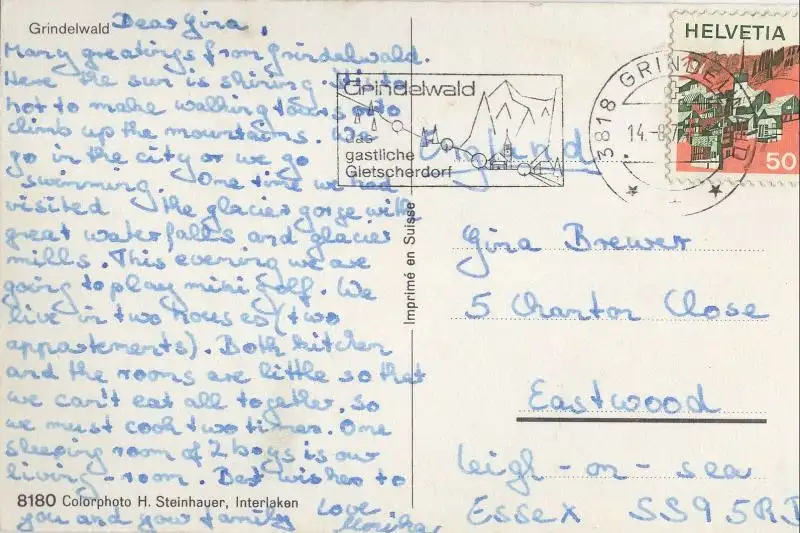 Grindelwald Dear Gina,
Many greetings from Grindelwald.
Here the sun is shining. It is to
hot to make walking tours or to
climb up the mountains. We
go in the city or we go
swimming. One time we had
visited the glacier gorge with
great waterfalls and glacier
mills. This evening we are
going to play mini golf. We
live in two houses (two
appartements). Both kitchen
and the rooms are little so that
we can't eat all together, so
we must cook two times. One
sleeping room of 2 boys is our
living-room. Best wishes to
8180 Colorphoto H. Steinhauer, Interlaken
you and your family Love
Monika
Imprimé en Suisse
Grindelwald
das
gastliche
Gletscherdorf
3818 GRINDELWALD
14.-8.
HELVETIA
50
England
Gina Brewer
5 Chanton Close
Eastwood
Leigh-on-sea
Essex SS9 5RJ